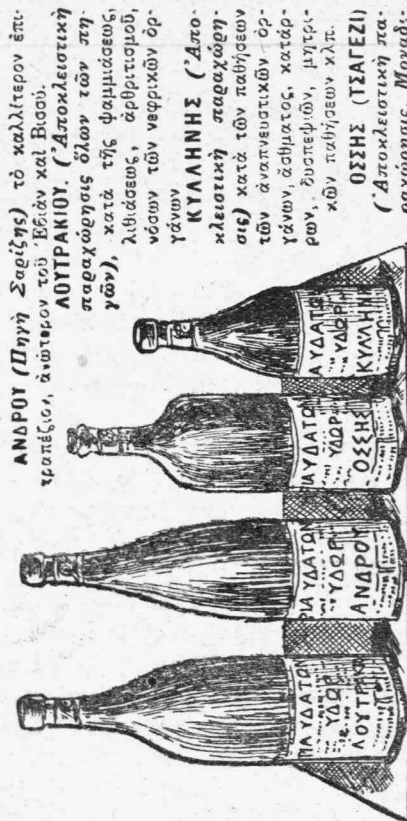 ΑΝΔΡΟΥ (Πηγὴ Σαρίζης) τὸ καλλίτερον ἐπι-
τραπέζιον, ἀνώτερον τοῦ Ἐβιὰν καὶ Βισσύ.
ΛΟΥΤΡΑΚΙΟΥ, (Ἀποκλειστικὴ
παραχώρησις ὅλων τῶν πη-
γῶν), κατὰ τῆς ψαμμιάσεως,
λιθιάσεως, ἀρθριτισμοῦ,
νόσων τῶν νεφρικῶν ὀρ-
γάνων
ΚΥΛΛΗΝΗΣ (Ἀπο-
κλειστικὴ παραχώρη-
σις) κατὰ τῶν παθήσεων
τῶν ἀναπνευστικῶν ὀρ-
γάνων, ἄσθματος, κατάρ-
ρων, δυσπεψιῶν, μητρι-
κῶν παθήσεων κλπ.
ΟΣΣΗΣ (ΤΣΑΓΕΖΙ)
(Ἀποκλειστικὴ πα-
ραχώρησις Μοναδι-
ΙΑ ΥΔΑΤΩΝ
ΥΔΩΡ
ΛΟΥΤΡΑΚΙ
ΡΙΑ ΥΔΑΤΩΝ
ΥΔΩΡ
ΑΝΔΡΟΥ
ΙΑ ΥΔΑΤΩΝ
ΥΔΩΡ
ΟΣΣΗΣ
Α ΥΔΑΤΩ
ΥΔΩΡ
ΚΥΛΛΗΝΗ